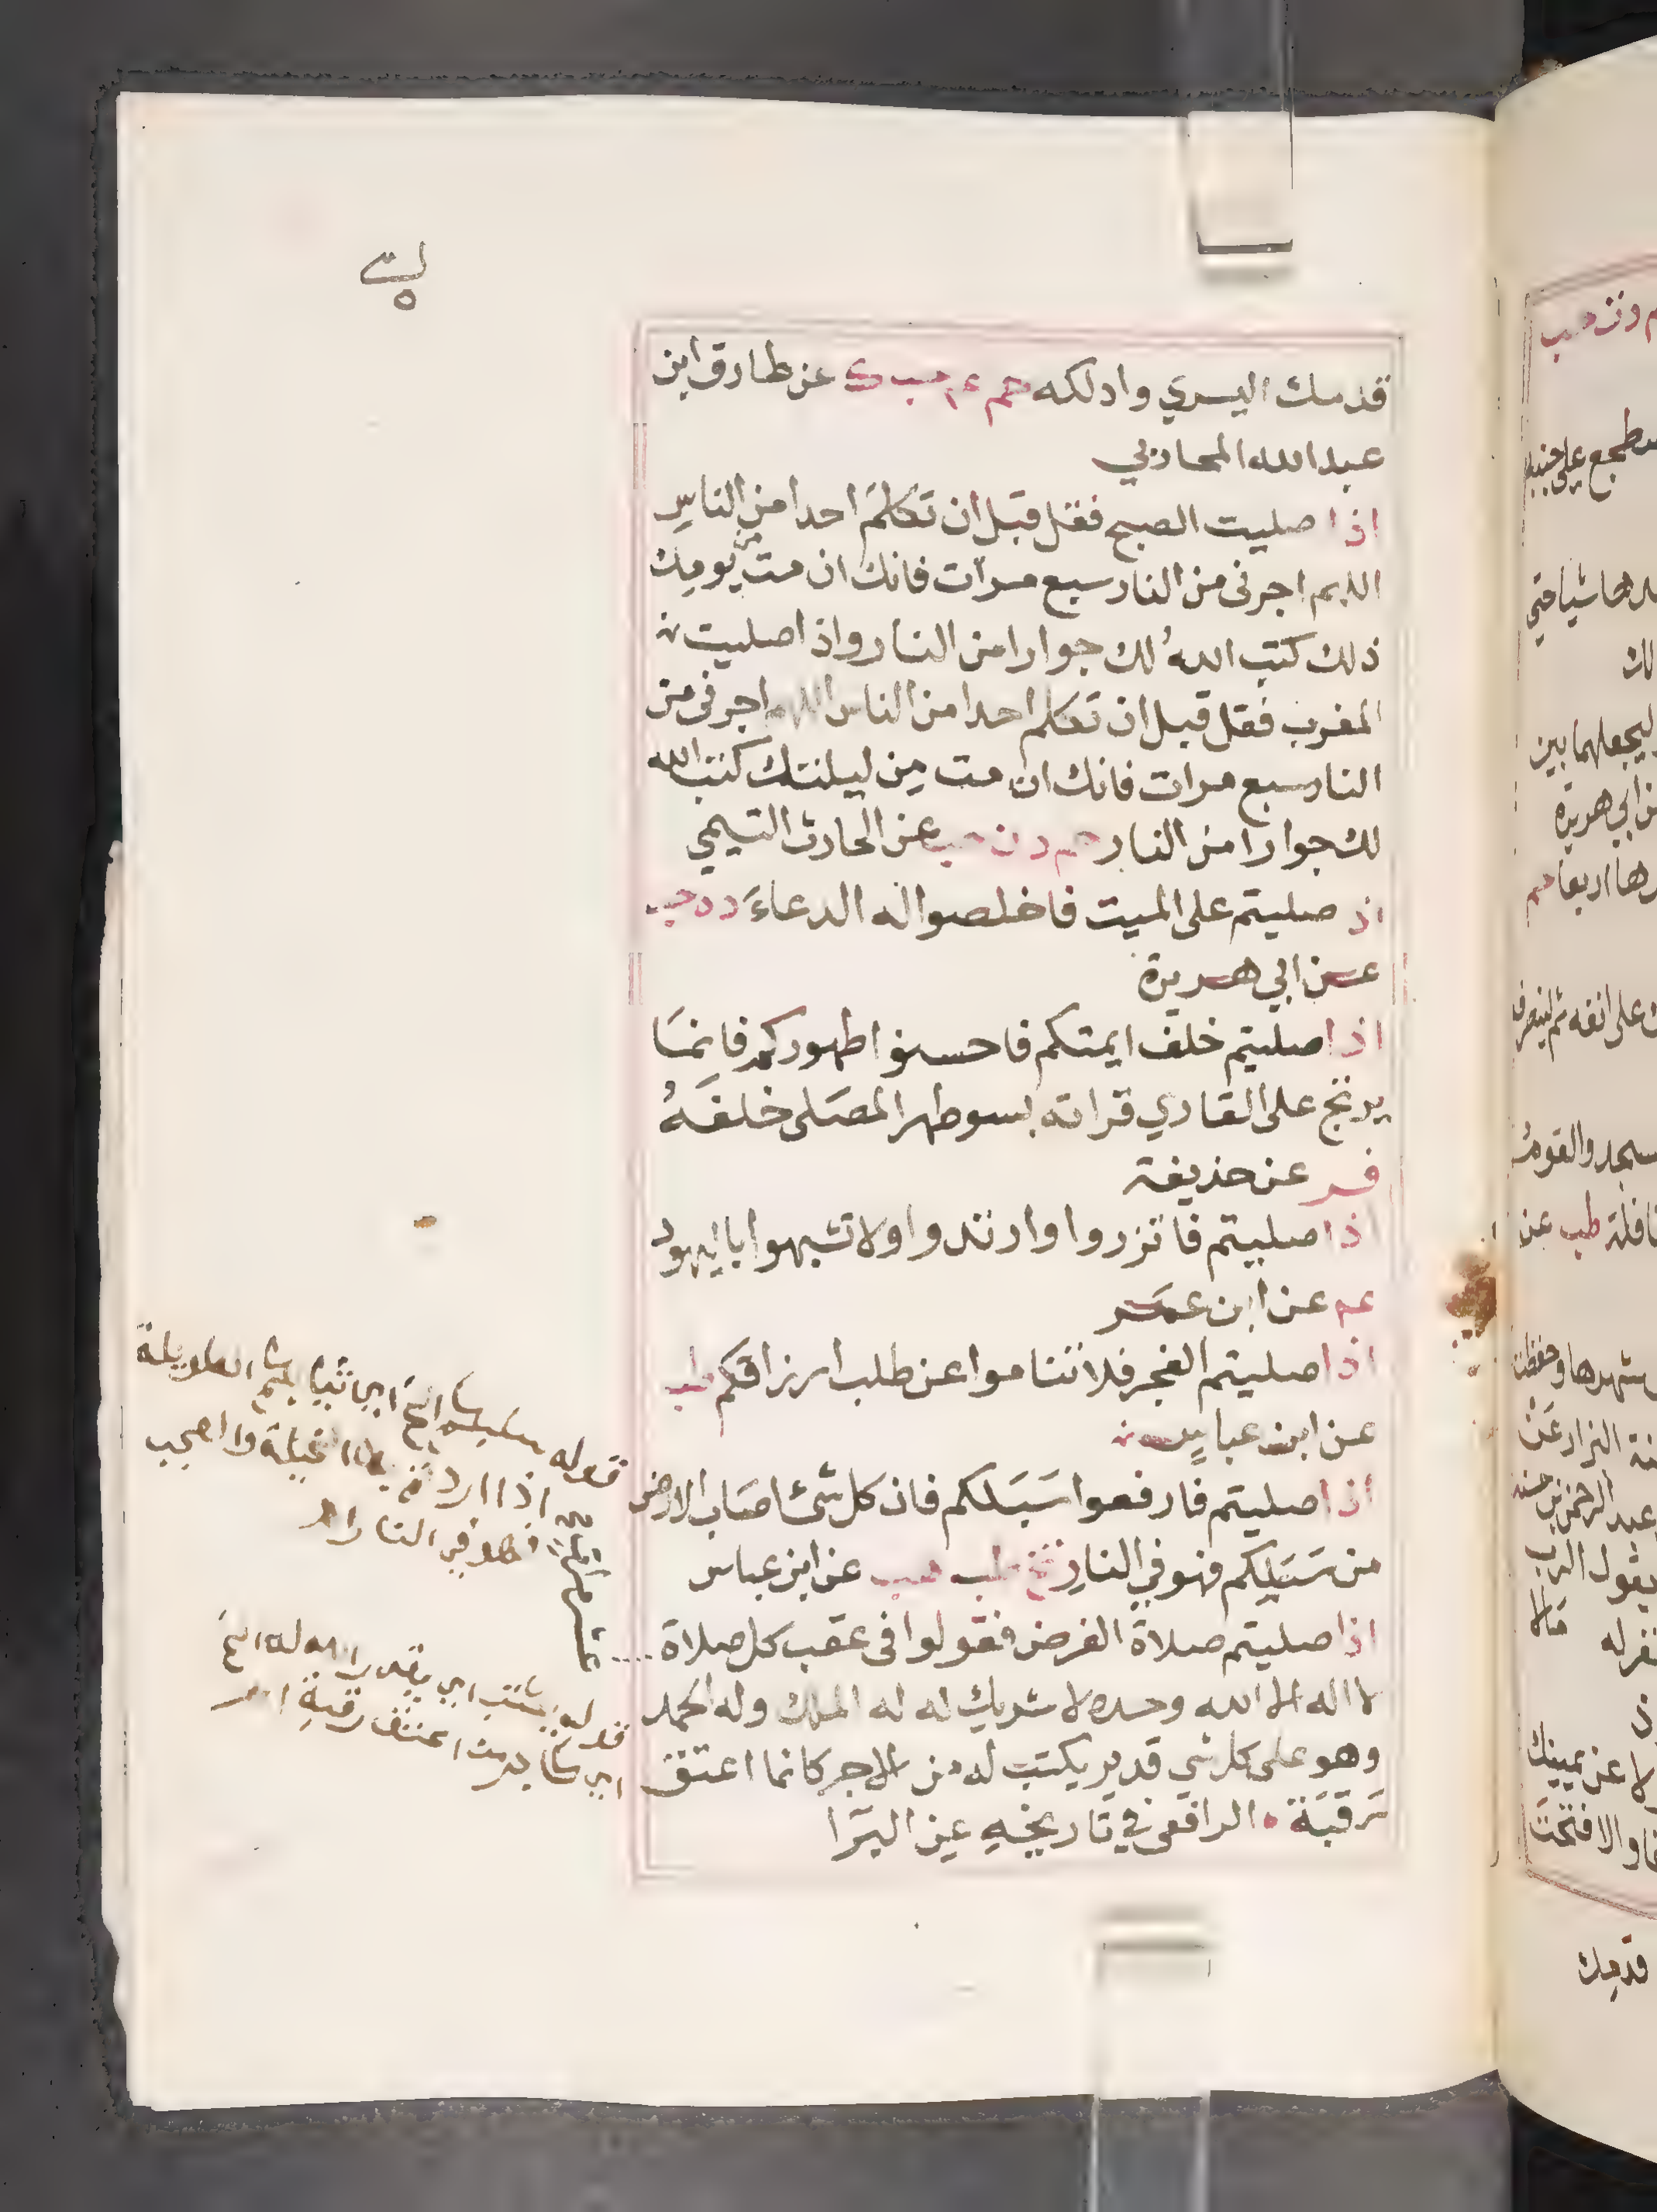 قدمك اليسري وادلكه حم عم حب ك عن طارق ابن
عبد الله المحاربي
اذا صليت الصبح فقل قبل ان تكلم احدا من الناس
اللهم اجرني من النار سبع مرات فانك ان مت من يومك
ذلك كتب الله لك جوارا من النار واذا صليت
المغرب فقل قبل ان تكلم احدا من الناس اللهم اجرني من
النار سبع مرات فانك ان مت من ليلتك كتب الله
لك جوارا من النار حم د ن حب عن الحارث التيمي
اذا صليتم على الميت فاخلصوا له الدعاء د ه حب
عن ابي هريرة
اذا صليتم خلف ايمتكم فاحسنوا طهوركم فانما
يرتج على القاري قراته بسو طهر المصلى خلفه
فر عن حذيفة
اذا صليتم فاتزروا وارتدوا ولا تشبهوا باليهود
عد عن ابن عمر
اذا صليتم الفجر فلا تناموا عن طلب ارزاقكم طب
عن ابن عباس
اذا صليتم فارفعوا سبلكم فان كل شئ اصاب الارض
من سبلكم فهو في النار تخ طب هب عن ابن عباس
اذا صليتم صلاة الفرض فقولوا في عقب كل صلاة
لا اله الا الله وحده لا شريك له له الملك وله الحمد
وهو على كل شي قدير يكتب له من الاجر كانما اعتق
رقبة الرافعي في تاريخه عن البرا
قوله سبلكم الخ اي ثيابكم الطويلة
فهو في النار اهـ
قوله يكتب اي يقدر الله له الخ